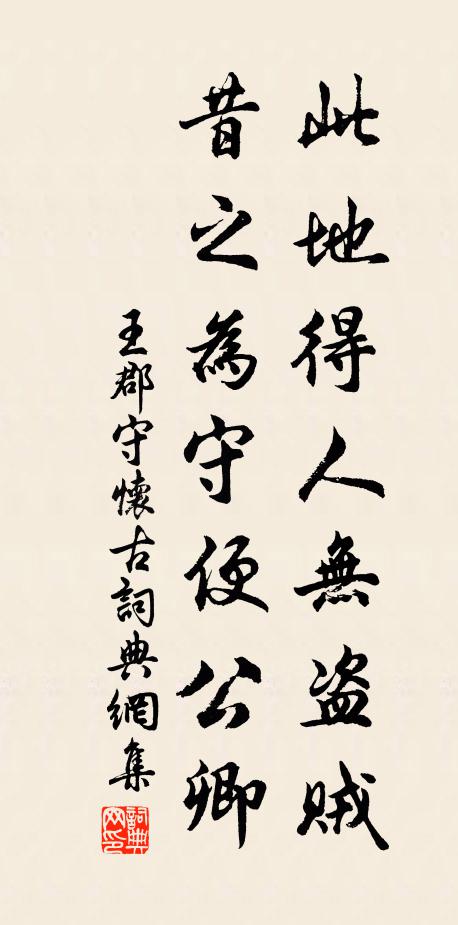 此地得人無盗賊
昔之為守便公卿
王郡守懷古詞典網集
詞典
网印